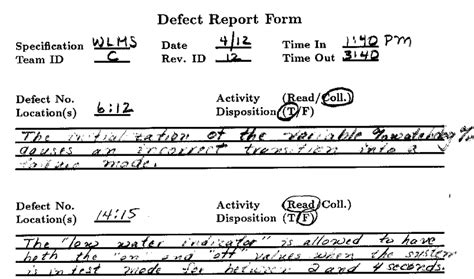 Defect Report Form
Specification WLMS Date 4/12 Time In 1:40 PM
Team ID C Rev. ID 12 Time Out 3:40
Defect No. Activity (Read/Coll.)
Location(s) 6:12 Disposition (T/F)
The initialization of the variable
causes an incorrect transition into a
failure mode.
Defect No. Activity (Read/Coll.)
Location(s) 14:15 Disposition (T/F)
The "low water indicator" is allowed to have
both the "on" and "off" values when the system
is in test mode for between 2 and 4 seconds.